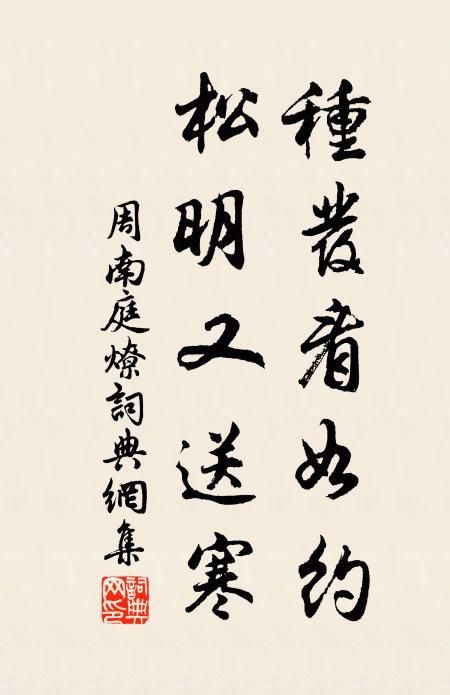 種發看如約
松明又送寒
周南庭燎詞典網集
詞典网印